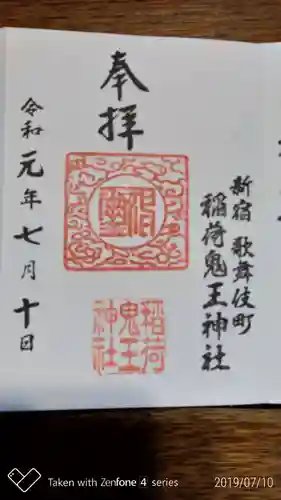 奉拝
新宿 歌舞伎町
稲荷鬼王神社
稲荷
鬼王
神社
令和元年七月十日
Taken with Zenfone 4 series
2019/07/10